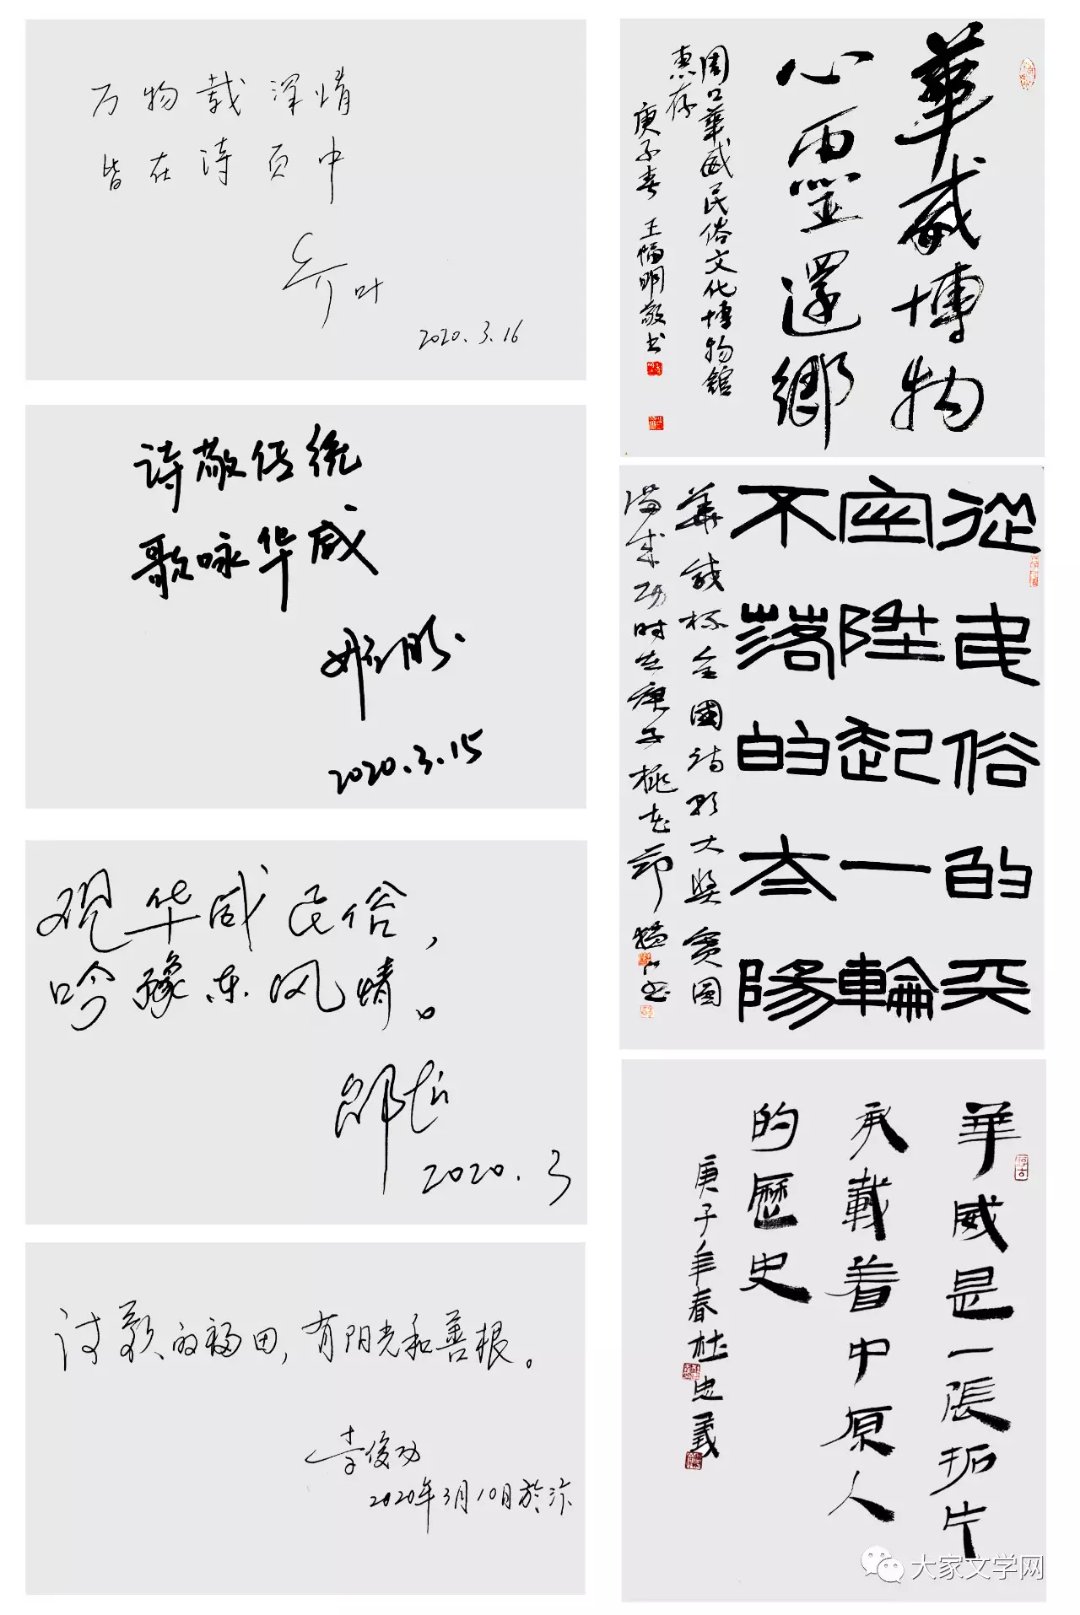 万物载深情
皆在诗页中
乔叶
2020.3.16
诗敬传统
歌咏华威
2020.3.15
观华威民俗，
吟豫东风情。
邵超
2020.3
诗歌的福田，有阳光和善根。
李俊功
2020年3月10日於汴
華威博物
心靈還鄉
周口華威民俗文化博物館
惠存
庚子春 王幅明敬书
從民俗的天
空陞起一輪
不落的太陽
華威杯全國詩歌大奬賽圆
满成功时在庚子桃花节
華威是一張拓片
承載着中原人
的歷史
庚子年春杜忠義
大家文学网